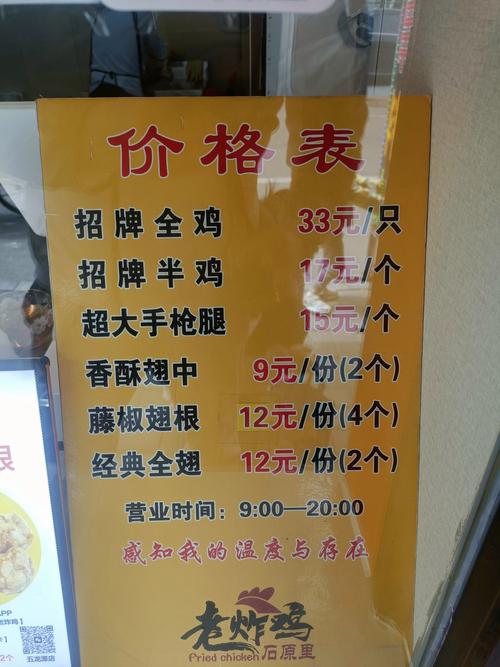 价格表
招牌全鸡 33元/只
招牌半鸡 17元/个
超大手枪腿 15元/个
香酥翅中 9元/份(2个)
藤椒翅根 12元/份(4个)
经典全翅 12元/份(2个)
营业时间：9:00—20:00
感知我的温度与存在
老炸鸡
fried chicken 石原里
PP
炸鸡
五龙潭店
2个